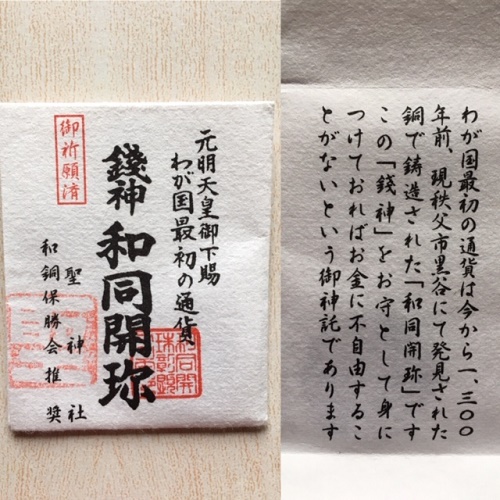 元明天皇御下賜
わが国最初の通貨
錢神 和同開珎
御祈願済
聖神社
和銅保勝会推奨
わが国最初の通貨は今から一、三〇〇
年前、現秩父市黒谷にて発見された
銅で鋳造された「和同開珎」です
この「錢神」をお守として身に
つけておればお金に不自由するこ
とがないという御神託であります